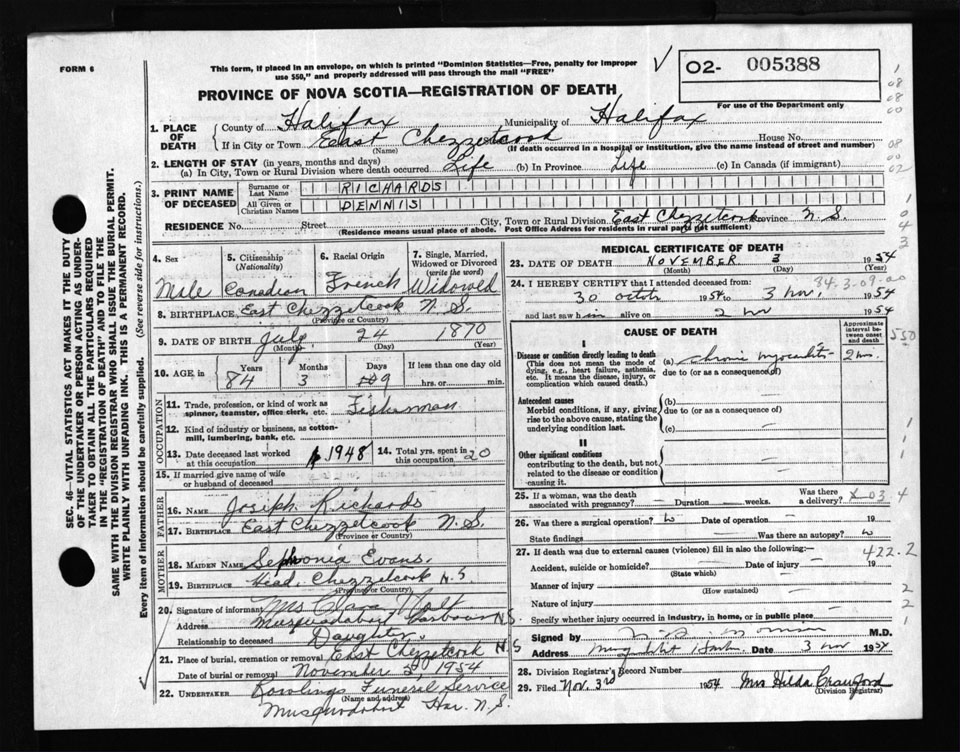 FORM 6
This form, if placed in an envelope, on which is printed "Dominion Statistics—Free, penalty for improper
use $50," and properly addressed will pass through the mail "FREE"
O2- 005388
For use of the Department only
PROVINCE OF NOVA SCOTIA—REGISTRATION OF DEATH
SEC. 46—VITAL STATISTICS ACT MAKES IT THE DUTY
OF THE UNDERTAKER OR PERSON ACTING AS UNDER-
TAKER TO OBTAIN ALL THE PARTICULARS REQUIRED
IN THE "REGISTRATION OF DEATH" AND TO FILE THE
SAME WITH THE DIVISION REGISTRAR WHO SHALL ISSUE THE BURIAL PERMIT.
WRITE PLAINLY WITH UNFADING INK. THIS IS A PERMANENT RECORD.
Every item of information should be carefully supplied. (See reverse side for instructions.)
1. PLACE OF DEATH County of Halifax Municipality of Halifax
If in City or Town East Chezzetcook House No.
(Name) (If death occurred in a hospital or institution, give the name instead of street and number)
2. LENGTH OF STAY (in years, months and days)
(a) In City, Town or Rural Division where death occurred Life (b) In Province Life (c) In Canada (if immigrant)
3. PRINT NAME OF DECEASED Surname or Last Name RICHARDS
All Given or Christian Names DENNIS
RESIDENCE No. Street City, Town or Rural Division East Chezzetcook Province N.S.
(Residence means usual place of abode. Post Office Address for residents in rural parts not sufficient)
4. Sex Male
5. Citizenship (Nationality) Canadian
6. Racial Origin French
7. Single, Married, Widowed or Divorced (write the word) Widowed
8. BIRTHPLACE East Chezzetcook N.S.
(Province or Country)
9. DATE OF BIRTH July 24 1870
(Month) (Day) (Year)
10. AGE in Years Months Days If less than one day old
84 3 9 hrs. or min.
OCCUPATION
11. Trade, profession, or kind of work as spinner, teamster, office clerk, etc. Fisherman
12. Kind of industry or business, as cotton-mill, lumbering, bank, etc.
13. Date deceased last worked at this occupation 1948
14. Total yrs. spent in this occupation 20
15. If married give name of wife or husband of deceased
FATHER
16. NAME Joseph Richards
17. BIRTHPLACE East Chezzetcook N.S.
(Province or Country)
MOTHER
18. MAIDEN NAME Sephonie Evans.
19. BIRTHPLACE Head. Chezzetcook N.S
(Province or Country)
20. Signature of informant Mrs
Address Musquodoboit Harbour N.S.
Relationship to deceased Daughter.
21. Place of burial, cremation or removal East Chezzetcook N.S
Date of burial or removal November 1954
22. UNDERTAKER Rowlings Funeral Service
(Name and address)
Musquodoboit Har. N.S.
MEDICAL CERTIFICATE OF DEATH
23. DATE OF DEATH NOVEMBER 3 1954
(Month) (Day) (Year)
84.3-09-00
24. I HEREBY CERTIFY that I attended deceased from:
30 1954 to 3 nov. 1954
and last saw him alive on 2 nov 1954
CAUSE OF DEATH
Approximate interval between onset and death
I
Disease or condition directly leading to death
(This does not mean the mode of dying, e.g., heart failure, asthenia, etc. It means the disease, injury, or complication which caused death.)
(a) chronic myocarditis 2
due to (or as a consequence of)
Antecedent causes
Morbid conditions, if any, giving rise to the above cause, stating the underlying condition last.
(b) —
due to (or as a consequence of)
(c) —
II
Other significant conditions
contributing to the death, but not related to the disease or condition causing it.
25. If a woman, was the death associated with pregnancy? — Duration weeks. Was there a delivery?
26. Was there a surgical operation? Date of operation — 19
State findings — Was there an autopsy?
27. If death was due to external causes (violence) fill in also the following:— 422.2
Accident, suicide or homicide? Date of injury 19
(State which)
Manner of injury
(How sustained)
Nature of injury
Specify whether injury occurred in industry, in home, or in public place
Signed by M.D.
Address Date 3 nov 1954
28. Division Registrar's Record Number
29. Filed Nov. 3rd 1954 Mrs Hilda Crawford
(Division Registrar)